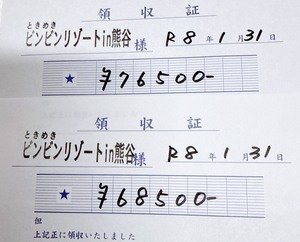 領収証
ときめき
ビンビンリゾートin熊谷様 R8年1月31日
★ ¥76500-
領収証
ときめき
ビンビンリゾートin熊谷様 R8年1月31日
★ ¥68500-
但
上記正に領収いたしました